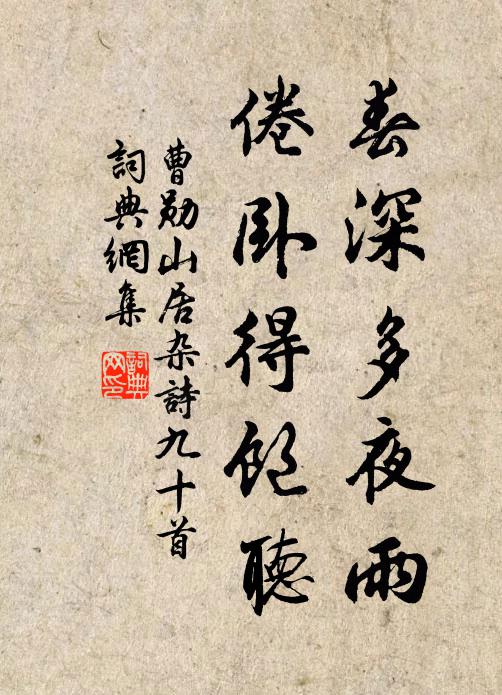 春深多夜雨
倦卧得饱聽
曹勛山居杂詩九十首
詞典網集
詞典
网印